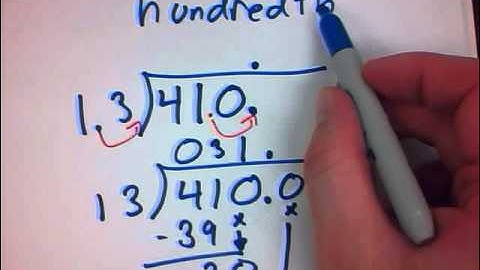 hundredth
1.3)410.
031.
13)410.0
-39